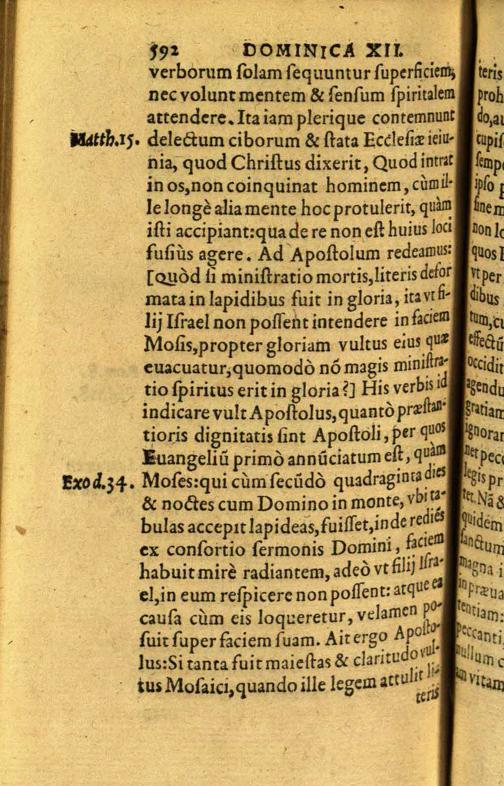 592 DOMINICA XII.
verborum ſolam ſequuntur ſuperficiem,
nec volunt mentem & ſenſum ſpiritalem
attendere. Ita iam plerique contemnunt
Matth.15. delectum ciborum & ſtata Eccleſiæ ieiu-
nia, quod Chriſtus dixerit, Quod intrat
in os, non coinquinat hominem, cùm il-
le longè alia mente hoc protulerit, quàm
iſti accipiant: qua de re non eſt huius loci
fuſiùs agere. Ad Apoſtolum redeamus:
[Quòd ſi miniſtratio mortis, literis defor
mata in lapidibus fuit in gloria, ita vt fi-
lij Iſrael non poſſent intendere in faciem
Moſis, propter gloriam vultus eius quæ
euacuatur, quomodò nõ magis miniſtra-
tio ſpiritus erit in gloria?] His verbis id
indicare vult Apoſtolus, quantò præſtan-
tioris dignitatis ſint Apoſtoli, per quos
Euangeliũ primò annũciatum eſt, quàm
Exod.34. Moſes: qui cùm ſecũdò quadraginta dies
& noctes cum Domino in monte, vbi ta-
bulas accepit lapideas, fuiſſet, inde rediẽs
ex conſortio ſermonis Domini, faciem
habuit mirè radiantem, adeò vt filij Iſra-
el, in eum reſpicere non poſſent: atque ea
cauſa cùm eis loqueretur, velamen po-
ſuit ſuper faciem ſuam. Ait ergo Apoſto-
lus: Si tanta fuit maieſtas & claritudo vul-
tus Moſaici, quando ille legem attulit li-
teris
teris
proh
do, au
cupiſ
ſempe
ipſo p
ſine m
non lo
quos l
vt per
dibus
tum, cu
effectũ
occidit
agendu
gratiam
ignorar
net pecc
legis pr
tet. Nã &
quidem
ſanctum
magna i
in præua
tentiam:
peccanti,
nullum c
vitam